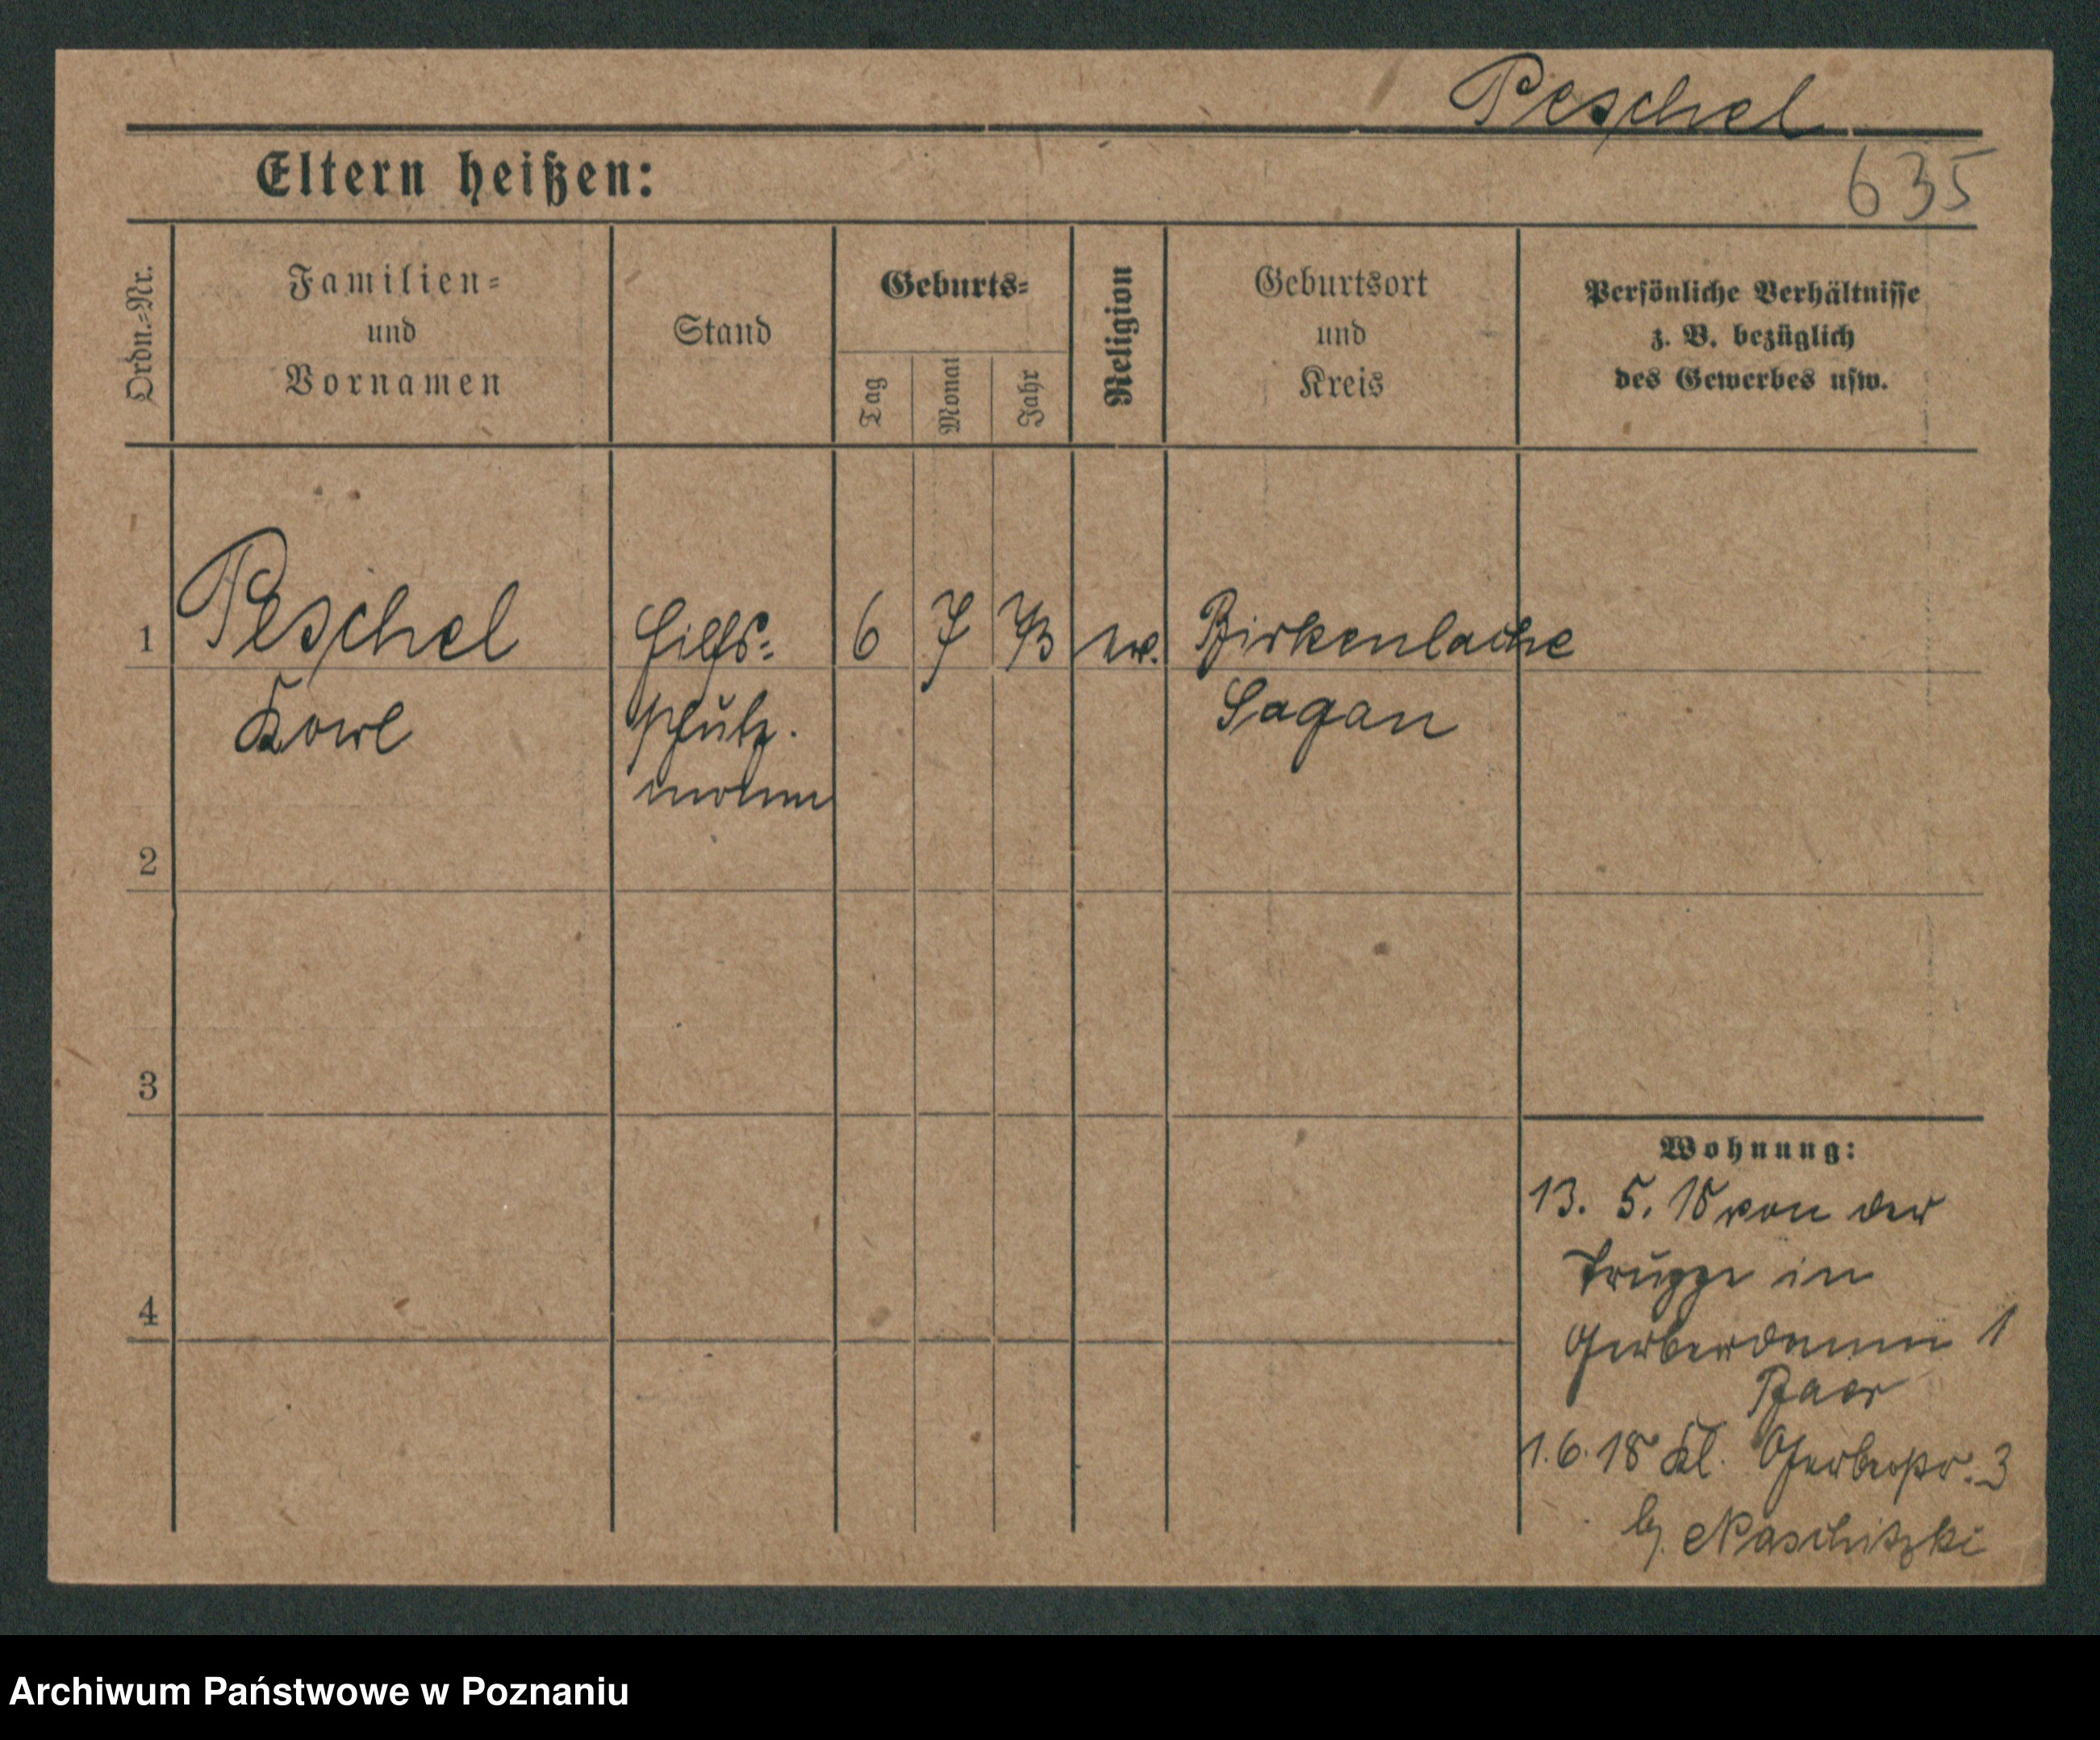 Peschel
Eltern heißen:
635
Ordn.-Nr.
Familien-
und
Vornamen
Stand
Geburts-
Tag
Monat
Jahr
Religion
Geburtsort
und
Kreis
Persönliche Verhältnisse
z. B. bezüglich
des Gewerbes usw.
1
Peschel
Karl
Hilfs-
schutz-
mann
6
7
73
ev.
Birkenlache
Sagan
2
3
4
Wohnung:
13. 5. 18 von der
Truppe in
Gerberdamm 1
Baer
1.6.18 Kl. Gerberstr. 3
b. Naschitzki
Archiwum Państwowe w Poznaniu